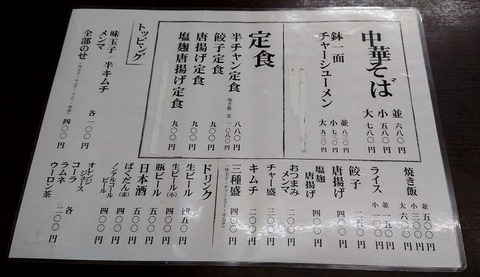 中華そば
並 六八〇円
小 五八〇円
大 七八〇円
鉢一面
チャーシューメン
並 八三〇円
小
大 九三〇円
定食
半チャン定食 八八〇円
餃子定食
唐揚げ定食 九〇〇円
塩麹唐揚げ定食 九〇〇円
トッピング
味玉子 半キムチ
メンマ
各 一〇〇円
全部のせ 四〇〇円
焼き飯
並 五〇〇円
小 三〇〇円
大 六〇〇円
ライス
餃子
唐揚げ 四〇〇円
塩麹唐揚げ 四〇〇円
おつまみメンマ 二〇〇円
チャー盛 三〇〇円
キムチ 二〇〇円
三種盛
ドリンク
生ビール
生ビール(小)
瓶ビール 五〇〇円
日本酒 五〇〇円
ばくだん(赤)
ノンアルコールビール
オレンジジュース
コーラ
ラムネ
ウーロン茶
各 二〇〇円